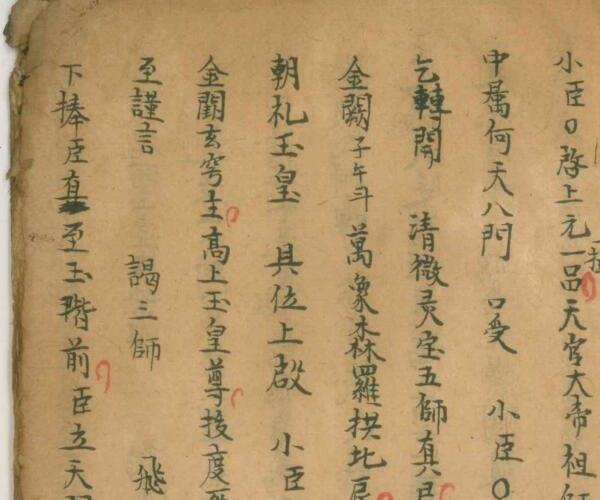 小臣〇啓上元一品天官大帝祖師
中属何天八門 口受 小臣〇
乞轉開 清微灵宝五師真君
金闕子午斗 萬象森羅拱北辰
朝礼玉皇 具位上啟 小臣
金闕玄穹主高上玉皇尊授度
至謹言 謁三師 飛
下捧臣真至玉階前臣立天門